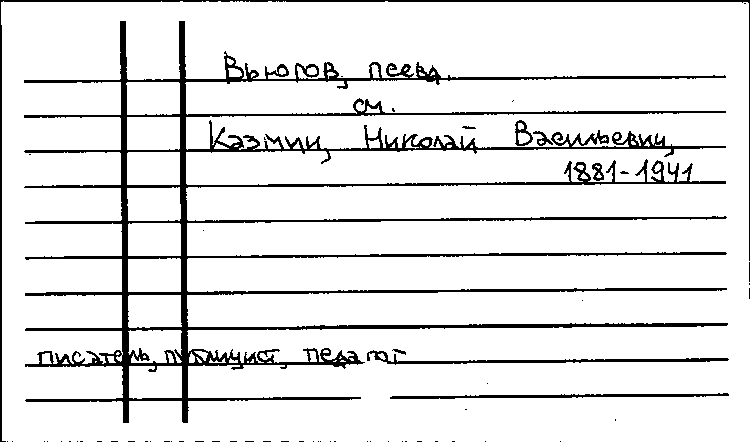 Вьюгов, псевд.
см.
Казмин, Николай Васильевич,
1881-1941
писатель, публицист, педагог